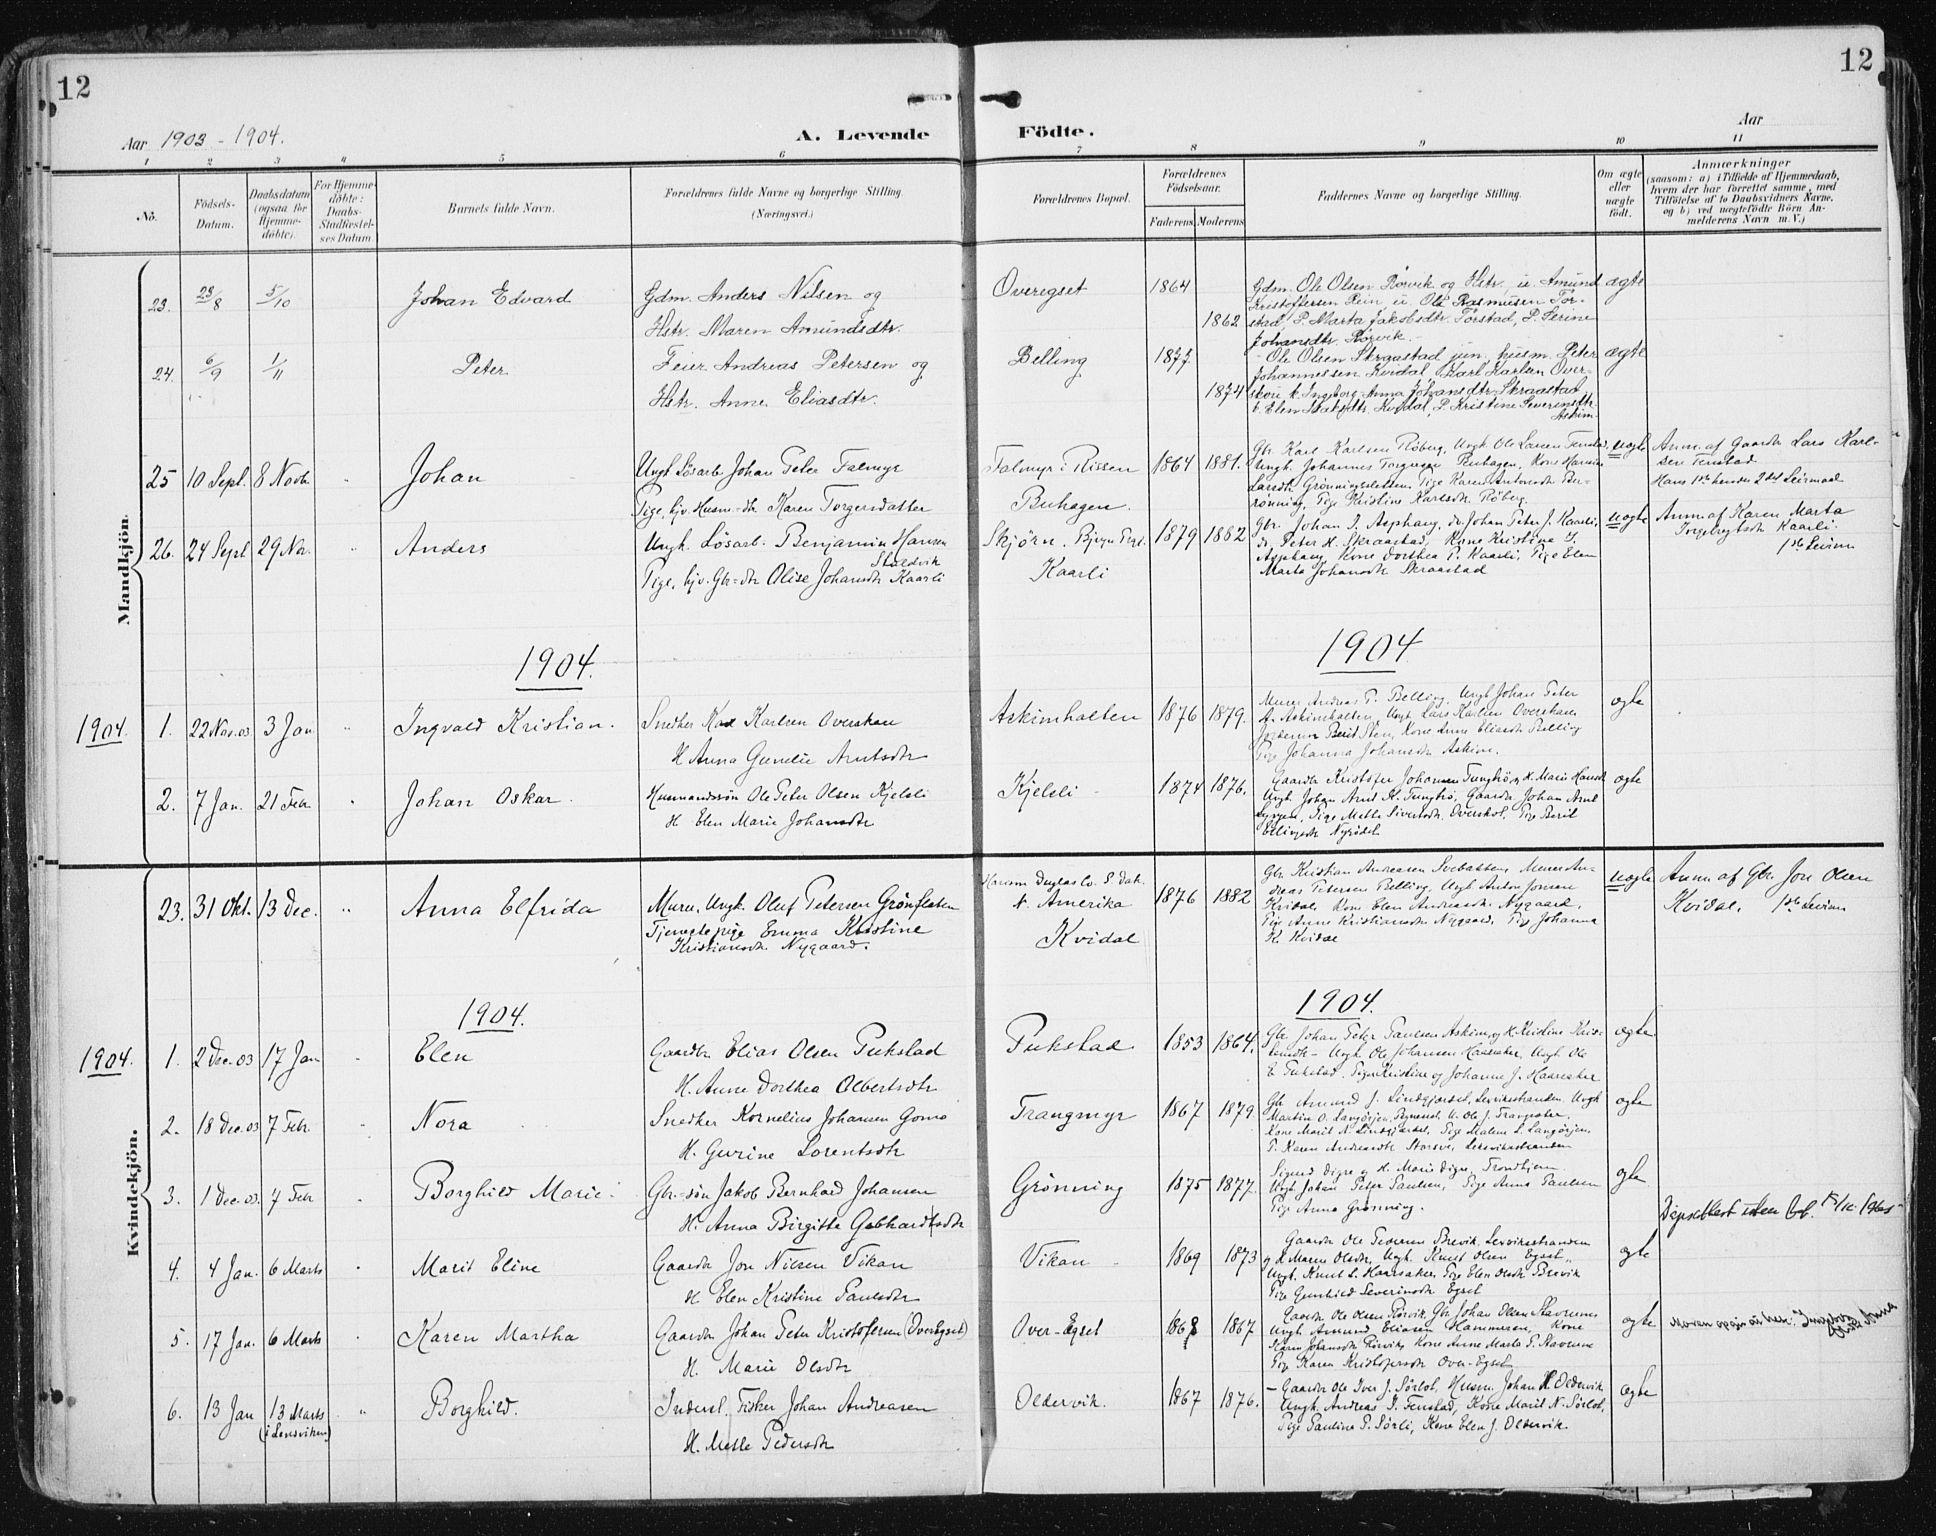 12
12
Aar 1903 - 1904.
A. Levende
Födte.
Aar
1 2 3 4 5 6 7 8 9 10 11
No.
Födsels-
Datum.
Daabsdatum
(ogsaa for
Hjemme-
døbte).
For Hjemme-
døbte:
Daabs-
Stadfæstel-
ses Datum
Barnets fulde Navn.
Forældrenes fulde Navne og borgerlige Stilling.
(Næringsvei.)
Forældrenes Bopæl.
Forældrenes
Födselsaar.
Faderens Moderens
Faddernes Navne og borgerlige Stilling.
Om ægte
eller
uægte
födt.
Anmærkninger
(saasom: a) i Tilfælde af Hjemmedaab,
hvem der har forrettet samme, med
Tilföielse af to Daabsvidners Navne.
og b) ved uægtefödte Börn An-
melderens Navn m. V.)
Mandkjön.
23. 23/8 5/10 Johan Edvard
Gdm. Anders Nilsen og
Hstr. Maren Amundsdtr.
Overegset 1864
1862
Gdm. Ole Olsen Rörvik og Hstr., u. Amund
Kristoffersen Rein, u. Ole Rasmusen Tor-
stad, P. Marta Jakobsdtr. Torstad, P. Serine
Johansdtr. Rörvik.
ægte
24. 6/9 1/11 Peter
Feier Andreas Petersen og
Hstr. Anne Eliasdtr.
Belling 1877
1874
Ole Olsen Skraastad jun. husm. Peter
Johannessen Kvidal, Karl Karlsen Over-
Ingeborg Anna Johansdtr. Skraastad
Kvidal, P. Kristine Severinsdtr.
Askim
ægte
25 10 Sept. 8 Novb. " Johan
Ungk. Lösarb. Johan Peter Falmyr
Pige, hjv. Husm.-dtr Karen Torgersdatter
Falmyr i Rissen
Buhagen.
1864 1881.
Gbr. Karl Karlsen Röberg, Ungk. Ole Larsen Fenstad,
Ungk. Johannes Torgersen Buhagen, Kone
Larsdtr. Grönningsletten, Pige Karen Antonsdtr
rönning, Pige Kristine Karlsdtr. Röberg.
uægte
Anm. af Gaardbr Lars Karl-
sen Fenstad
Hans 1ste hendes 2det Leiermaal
26. 24 Sept 29 Nov. " Anders
Ungk. Lösarb. Benjamin Hansen
Pige, hjv. Gbr-dtr Olise Johansdtr Kaarli
Skjörn, Bjugn
Kaarli
1879 1882
Gbr. Johan J. Asphaug, do Johan Peter J. Kaarli,
do. Peter H. Skraastad, Kone Kristine J.
Asphaug, Kone Dorthea P. Kaarli, Pige Elen
Marta Johansdtr Skraastad
uægte
Anm. af Karen Marta
Ingebrigtsdtr Kaarli.
1ste Leierm
1904.
1904
1904. 1. 22 Nov. 03 3 Jan " Ingvald Kristian.
Snedker Karlsen Overskau
H. Anna Gunelie Arntsdtr
Askimholten 1876 1879.
Murer Andreas P. Belling, Ungk Johan Peter
A. Askimholten, Ungk Lars Karlsen Overskau
Jordemor Berit Sten, Kone Anne Eliasdtr Belling
Pige Johanna Johansdtr Askim.
ægte
2. 7 Jan. 21 Febr " Johan Oskar.
Husmandssön Ole Peter Olsen Kjelsli
H. Elen Marie Johansdtr
Kjelsli 1874 1876.
Gaardbr Kristofer Johansen H. Marie Hansdtr
Ungk. Johan Arnt K. Gaardbr Johan Arnt
Pige Mette Sivertsdtr. Overskot, Pige Berit
ægte
23. 31 Okt. 13 Dec. " Anna Elfrida
Murer, Ungk. Oluf Petersen Grönflaten
Tjenestepige Emma Kristine
Kristiansdtr Nygaard.
Harison Duglas Co. S. Dak.
N. Amerika
Kvidal
1876 1882
Gbr Kristian Andreasen Svebakken, Murer An-
dreas Petersen Belling, Ungk Anton Jonsen
Kvidal, Kone Elen Andreasdtr Nygaard,
Pige Anne Kristiansdtr Nygaard, Pige Johanna
K. Kvidal
uægte
Anm af Gbr Jon Olsen
Kvidal, 1ste Leierm
1904.
1904.
Kvindekjön.
1904. 1. 2 Dec. 03 17 Jan " Elen
Gaardbr Elias Olsen Pukstad
H. Anne Dorthea Olbertsdtr
Pukstad 1853 1864.
Gbr. Johan Peter Paulsen Askim, og H. Kristine Kris-
Ungk Ole Johansen Haarsaker, Ungk Ole
E. Pukstad, Pige Kristine og Johanne J. Haarsaker
ægte
2. 18 Dec. 03 7 Febr " Nora
Snedker Kornelius Johansen Gomo
H. Gurine Lorentsdtr
Trangmyr 1867 1879
Gbr Amund J. Lindgjerdet, Lexviksstranden, Ungk
Martin O. Langörjen, U. Ole J. Trangsaker
Kone Marit N. Lindgjerdet, Pige Malene L. Langörjen
P. Karen Andreasdtr Storsve, Leksvikstranden
ægte
3. 1 Dec. 03. 7 Febr " Borghild Marie.
Gbr-sön Jakob Bernhard Johansen
H. Anna Birgitte Gebhardtsdtr
Grönning 1875 1877.
Sigurd Digre og H. Marie Digre, Trondhjem
Ungk Johan Peter Paulsen, Pige Anna Paulsen
Pige Anna Grönning.
ægte
4. 4 Jan. 6 Marts " Marit Eline
Gaardbr Jon Nilsen Vikan
H Elen Kristine Paulsdtr
Vikan 1869 1873
Gaardbr Ole Pedersen Brevik, Lexviksstranden
og H. Maren Olsdtr, Ungk Knut Olsen Egset,
Ungk. Knut L. Haarsaker, Pige Elen Olsdtr Brevik
Pige Gunhild Severinsdtr Egset
ægte
5. 17 Jan. 6 Marts " Karen Martha
Gaardbr Johan Peter Kristofersen (Overegset)
H. Marie Olsdtr
Over-Egset 1868 1867
Gaardbr Ole Olsen Rörvik, Gbr. Johan Olsen Stavrunes
Ungk Amund Eliasen Hammeren, Kone
Karen Johansdtr Rörvik, Kone Anne Marta P. Stavrune
Pige Karen Kristofersdtr Over-Egset
ægte
6. 13 Jan 13 Marts " Borghild.
(i Lensviken)
Inderst, Fisker Johan Andreasen
H. Mette Pedersdtr
Oldervik. 1867 1876.
Gaardbr Ole Iver J. Sörlot, Husm. Johan K. Oldervik
Ungk. Andreas J. Fenstad, Kone Marit N. Sörlot,
Pige Pauline P. Sörli, Kone Elen J. Oldervik.
ægte